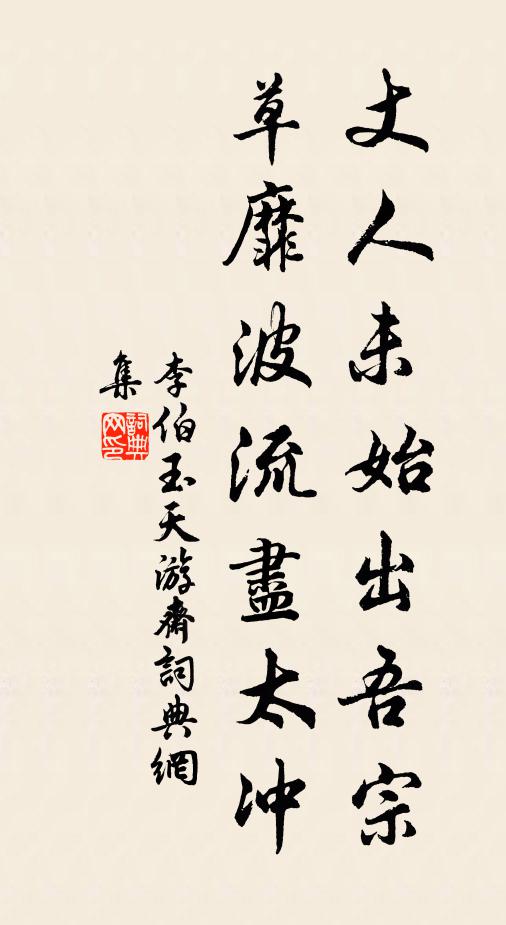 丈人未始出吾宗
草靡波流盡太沖
李伯玉天游齋詞典網
集
詞典
网印